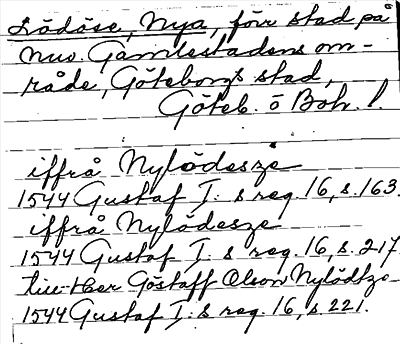 Lödöse, Nya, förr stad på
nuv. Gamlestadens om-
råde, Göteborgs stad,
Göteb. o Boh. l.
iffrå Nylödesze
1544 Gustaf I:s reg. 16, s. 163.
iffrå Nylödesze
1544 Gustaf I:s reg. 16, s. 217
till Her Göstaff Olson Nylödze
1544 Gustaf I:s reg. 16, s. 221.